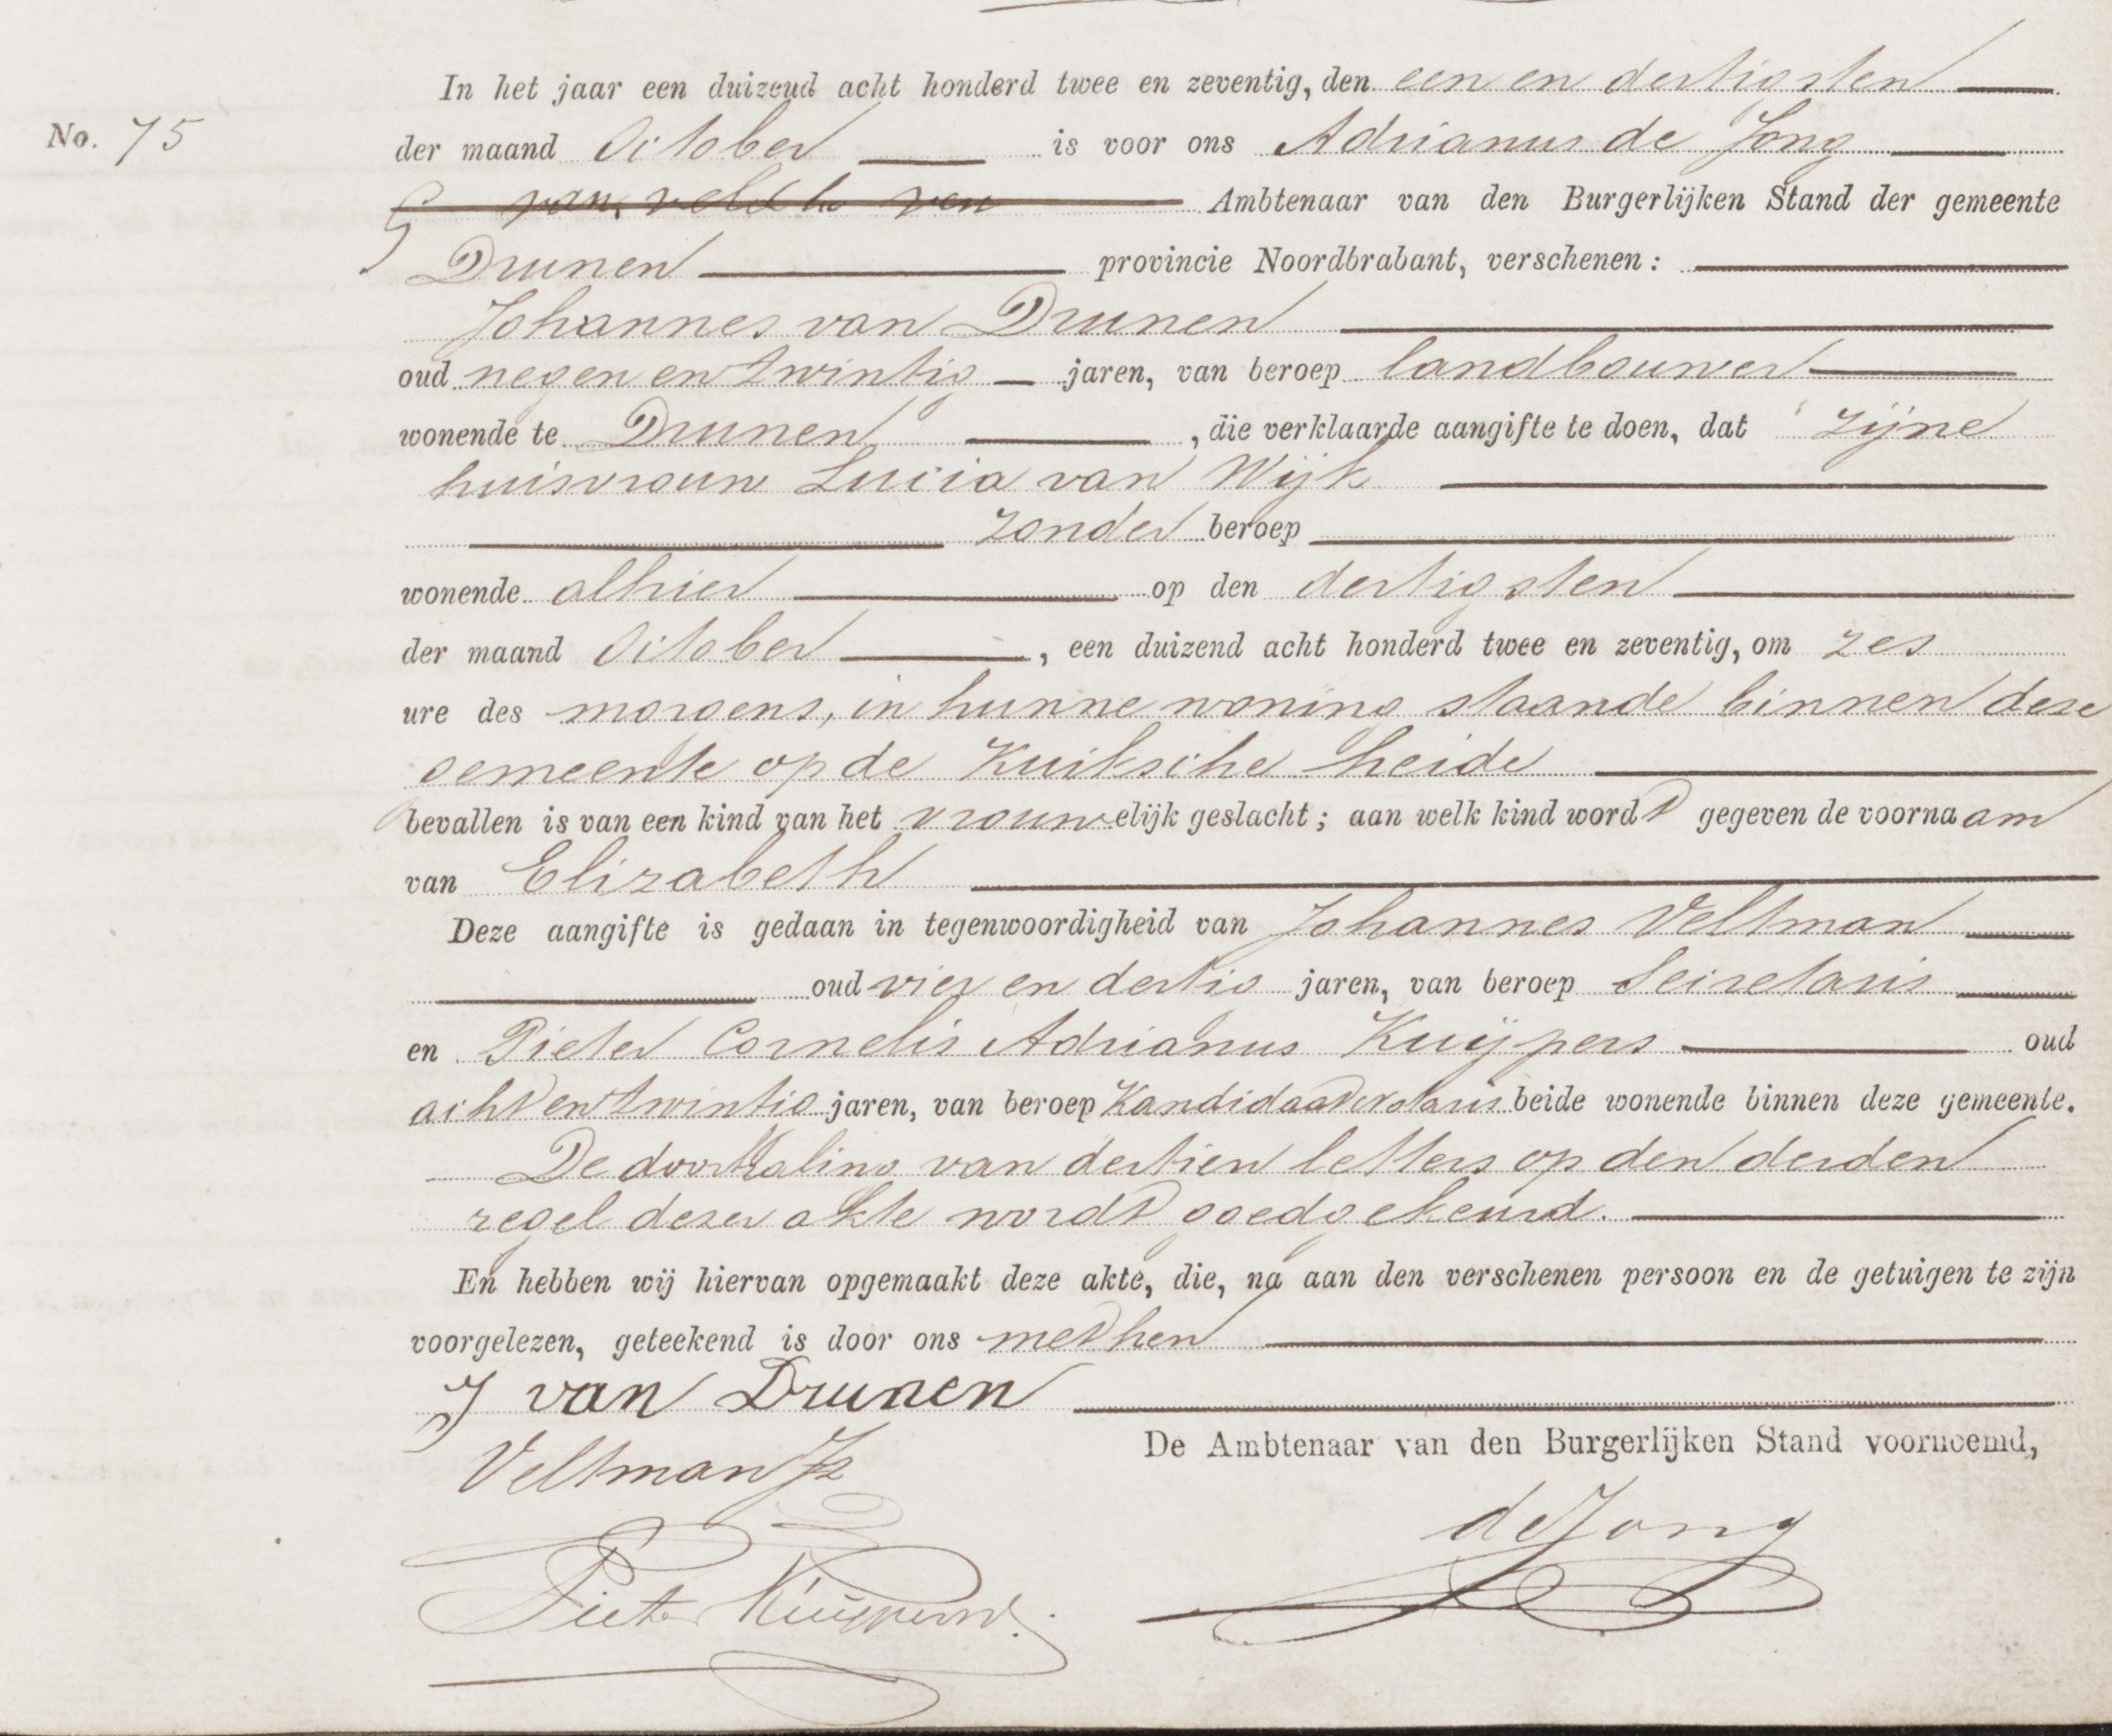 In het jaar een duizend acht honderd twee en zeventig, den een en dertigsten
No. 75
der maand October is voor ons Adrianus de Jong
Ambtenaar van den Burgerlijken Stand der gemeente
Drunen provincie Noordbrabant, verschenen:
Johannes van Drunen
oud negen en twintig jaren, van beroep landbouwer
wonende te Drunen, die verklaarde aangifte te doen, dat zijne
huisvrouw Lucia van Wijk
zonder beroep
wonende alhier op den dertigsten
der maand October, een duizend acht honderd twee en zeventig, om zes
ure des morgens, in hunne woning staande binnen deze
gemeente op de Kuiksche heide
bevallen is van een kind van het vrouwelijk geslacht; aan welk kind wordt gegeven de voornaam
van Elizabeth
Deze aangifte is gedaan in tegenwoordigheid van Johannes Veltman
oud vier en dertig jaren, van beroep Secretaris
en Pieter Cornelis Adrianus Kuijpers oud
acht en twintig jaren, van beroep Kandidaat notaris beide wonende binnen deze gemeente.
De doorhaling van dertien letters op den derden
regel dezer akte wordt goedgekeurd.
En hebben wij hiervan opgemaakt deze akte, die, na aan den verschenen persoon en de getuigen te zijn
voorgelezen, geteekend is door ons met hen
J van Drunen
De Ambtenaar van den Burgerlijken Stand voornoemd,
Veltman Jz
de Jong
Pieter Kuijpers